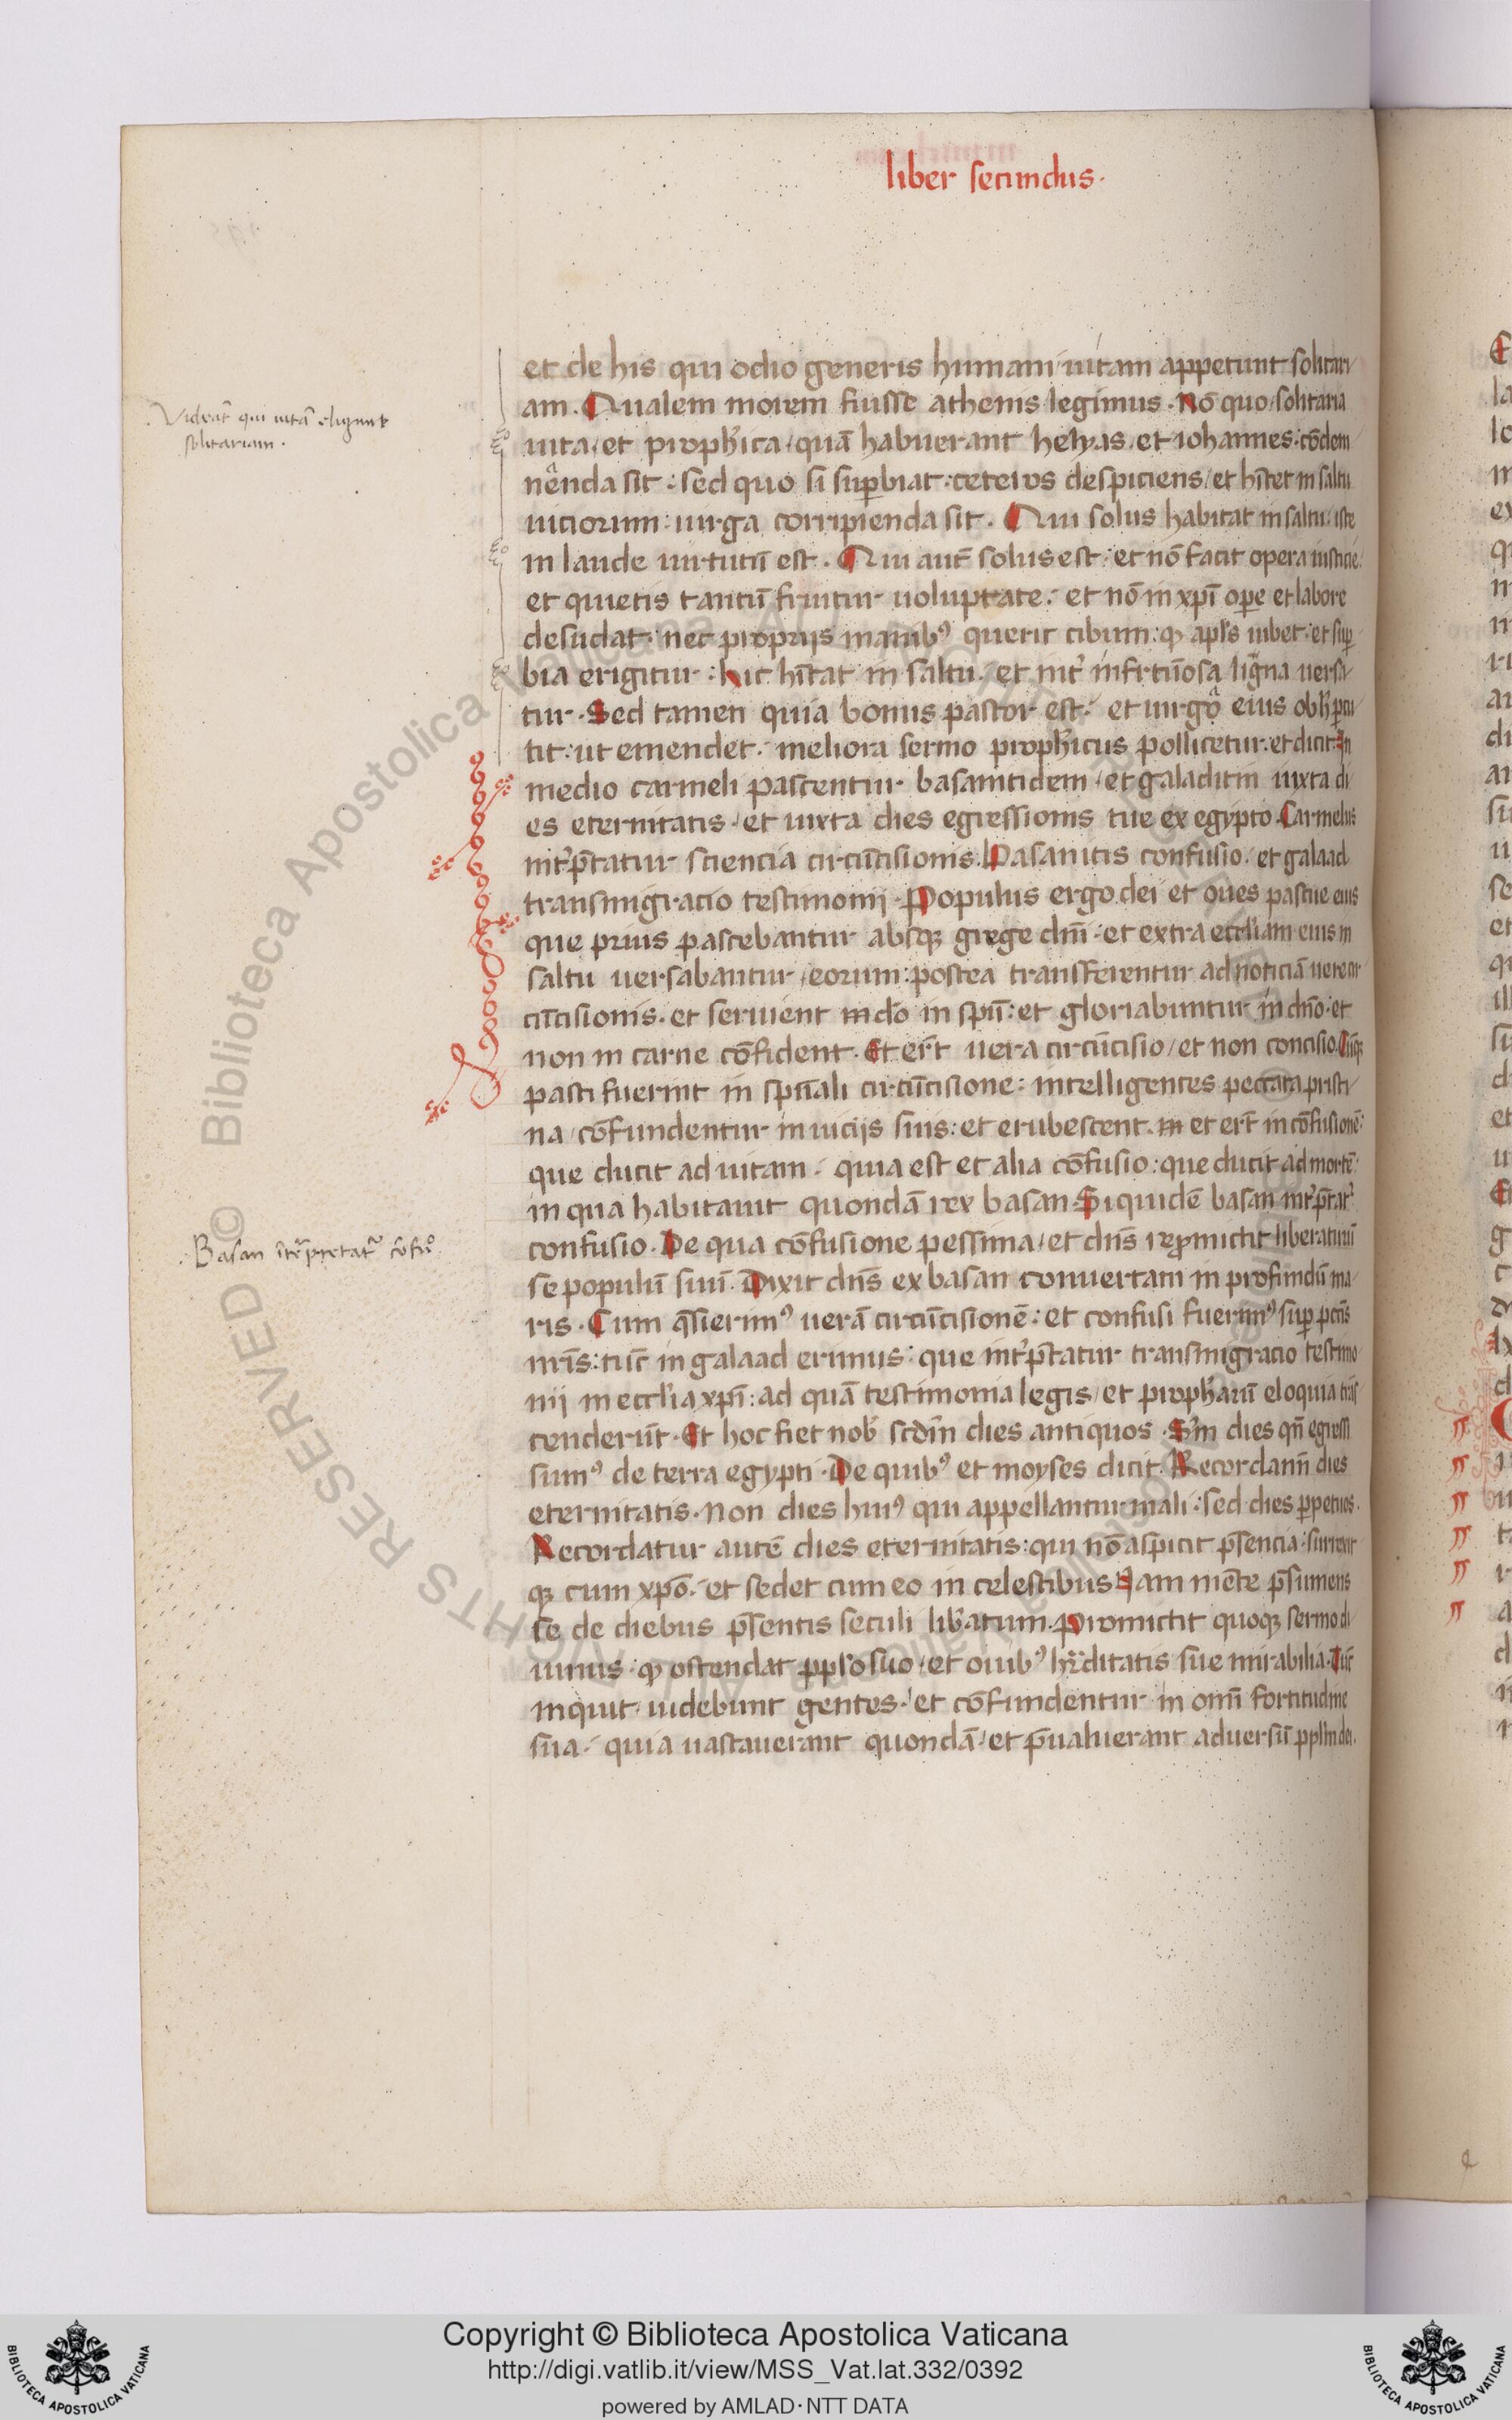 liber secundus·
et de his qui odio generis humani uitam appetunt solitari
am. Qualem morem fuisse athenis legimus. Nō quo solitaria
Videāt qui uitā eligunt
solitariam.
uita et prophīca quā habuerant helyas et iohannes: cōdem
nāenda sit: sed quo si sup̄biat: ceteros despiciens et hītet in saltu
uiciorum: uirga corripienda sit. Qui solus habitat in saltu: iste
in laude uirtutū est. Qui aut̄ solus est: et nō facit opera iusticie:
et quietis tantū fruitur uoluptate: et nō in xp̄i ope et labore
desudat: nec proprijs manibꝰ querit cibum: qd apl̄s iubet: et sup̄
bia erigitur: hic hītat in saltu: et int̄ infrtuōsa ligna uersa
tur. Sed tamen quia bonus pastor est: et uirgā eius ob h̄ pcu
tit: ut emendet: meliora sermo prophīcus pollicetur: et dicit: In
medio carmeli pascentur basanitidem et galaditin iuxta di
es eternitatis: et iuxta dies egressionis tue ex egypto. Carmelus
int̄p̄tatur sciencia circūcisionis. Basanitis confusio: et galaad
transmigracio testimonij. Populus ergo dei et oues pascue eius
que prius pascebantur absqꝫ grege dn̄i: et extra eccl̄iam eius in
saltu uersabantur eorum: postea transferentur ad noticiā uere cir
cūcisionis: et seruient do in spū: et gloriabuntur in dn̄o: et
non in carne cōfident. Et er̄t uera circūcisio et non concisio. Cūqꝫ
pasti fuerint in sp̄uali circūcisione: intelligentes peccata pristi
na cōfundentur in uicijs suis: et erubescent. et er̄t in cōfusionē:
que ducit ad uitam: quia est et alia cōfusio: que ducit ad mortē:
in qua habitauit quondā rex basan. Siquidē basan int̄p̄tat̄
Basan int̄pretat̄ cōfuº
confusio. De qua cōfusione pessima et dn̄s repmictit liberaturū
se populū suū. Dixit dn̄s ex basan conuertam in profundū ma
ris. Cum q̄sierimꝰ uerā circūcisionē: et confusi fuerimꝰ sup pctīs
nr̄is: tūc in galaad erimus: que int̄p̄tatur transmigracio testimo
nij in eccl̄ia xp̄i: ad quā testimonia legis et proph̄arū eloquia trās
tenderūt. Et hoc fiet nob̄ scd̄m dies antiquos. Sm̄ dies qn̄ egressi
sumꝰ de terra egypti. De quibꝰ et moyses dicit. Recordamī dies
eternitatis. Non dies huiꝰ qui appellantur mali: sed dies ppetuos.
Recordatur autē dies eternitatis: qui nō aspicit p̄sencia: surrexit
qꝫ cum xp̄o: et sedet cum eo in celestibus Iam mēte p̄sumens
se de diebus p̄sentis seculi lib̄atum. Promictit quoqꝫ sermo di
uinus: qd ostendat ppl̄o suo et ouibꝰ h̄editatis sue mirabilia. Tūc
inquit uidebunt gentes: et cōfundentur in omī fortitudine
sua: quia uastauerant quondā et p̄ualuerant aduersū ppl̄m dei.
Copyright © Biblioteca Apostolica Vaticana
http://digi.vatlib.it/view/MSS_Vat.lat.332/0392
powered by AMLAD·NTT DATA
BIBLIOTECA APOSTOLICA VATICANA
BIBLIOTECA APOSTOLICA VATICANA